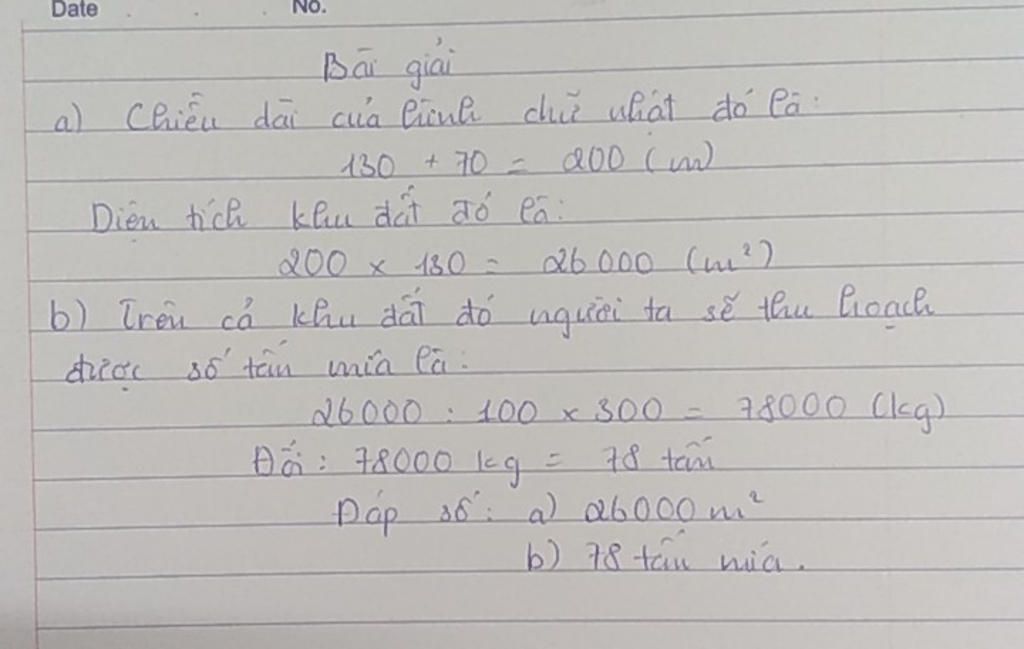 Date No.
Bài giải
a) Chiều dài của hình chữ nhật đó là:
130 + 70 = 200 (m)
Diện tích khu đất đó là:
200 x 130 = 26 000 (m²)
b) Trên cả khu đất đó người ta sẽ thu hoạch
được số tấn mía là:
26000 : 100 x 300 = 78000 (kg)
Đổi : 78000 kg = 78 tấn
Đáp số : a) 26000 m²
b) 78 tấn mía.